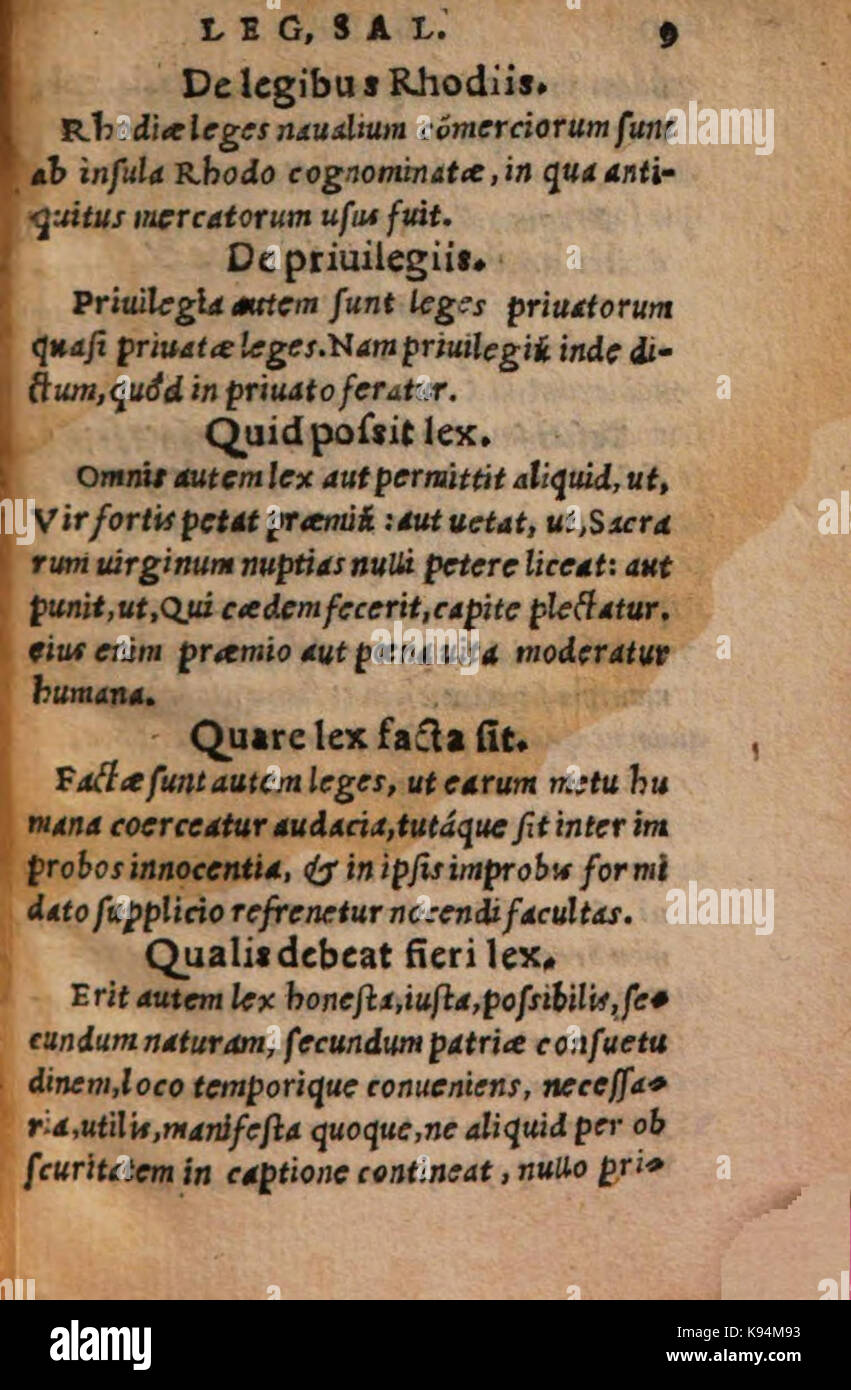 LEG, SAL. 9
De legibus Rhodiis.
Rhodiæ leges naualium cõmerciorum ſunt
ab inſula Rhodo cognominatæ, in qua anti-
quitus mercatorum uſus fuit.
De priuilegiis.
Priuilegia autem ſunt leges priuatorum
quaſi priuatæ leges. Nam priuilegiũ inde di-
ctum, quòd in priuato feratur.
Quid poſsit lex.
Omnis autem lex aut permittit aliquid, ut,
Vir fortis petat præmiũ: aut uetat, ut, Sacra
rum uirginum nuptias nulli petere liceat: aut
punit, ut, Qui cædem fecerit, capite plectatur.
eius enim præmio aut pœna uita moderatur
humana.
Quare lex facta ſit.
Factæ ſunt autem leges, ut earum metu hu
mana coerceatur audacia, tutáque ſit inter im
probos innocentia, & in ipſis improbis formi
dato ſupplicio refrenetur nocendi facultas.
Qualis debeat fieri lex.
Erit autem lex honeſta, iuſta, poſsibilis, ſe-
cundum naturam, ſecundum patriæ conſuetu
dinem, loco temporique conueniens, neceſſa-
ria, utilis, manifeſta quoque, ne aliquid per ob
ſcuritatem in captione contineat, nullo pri-
alamy
a
alamy
Image ID: K94M93
www.alamy.com